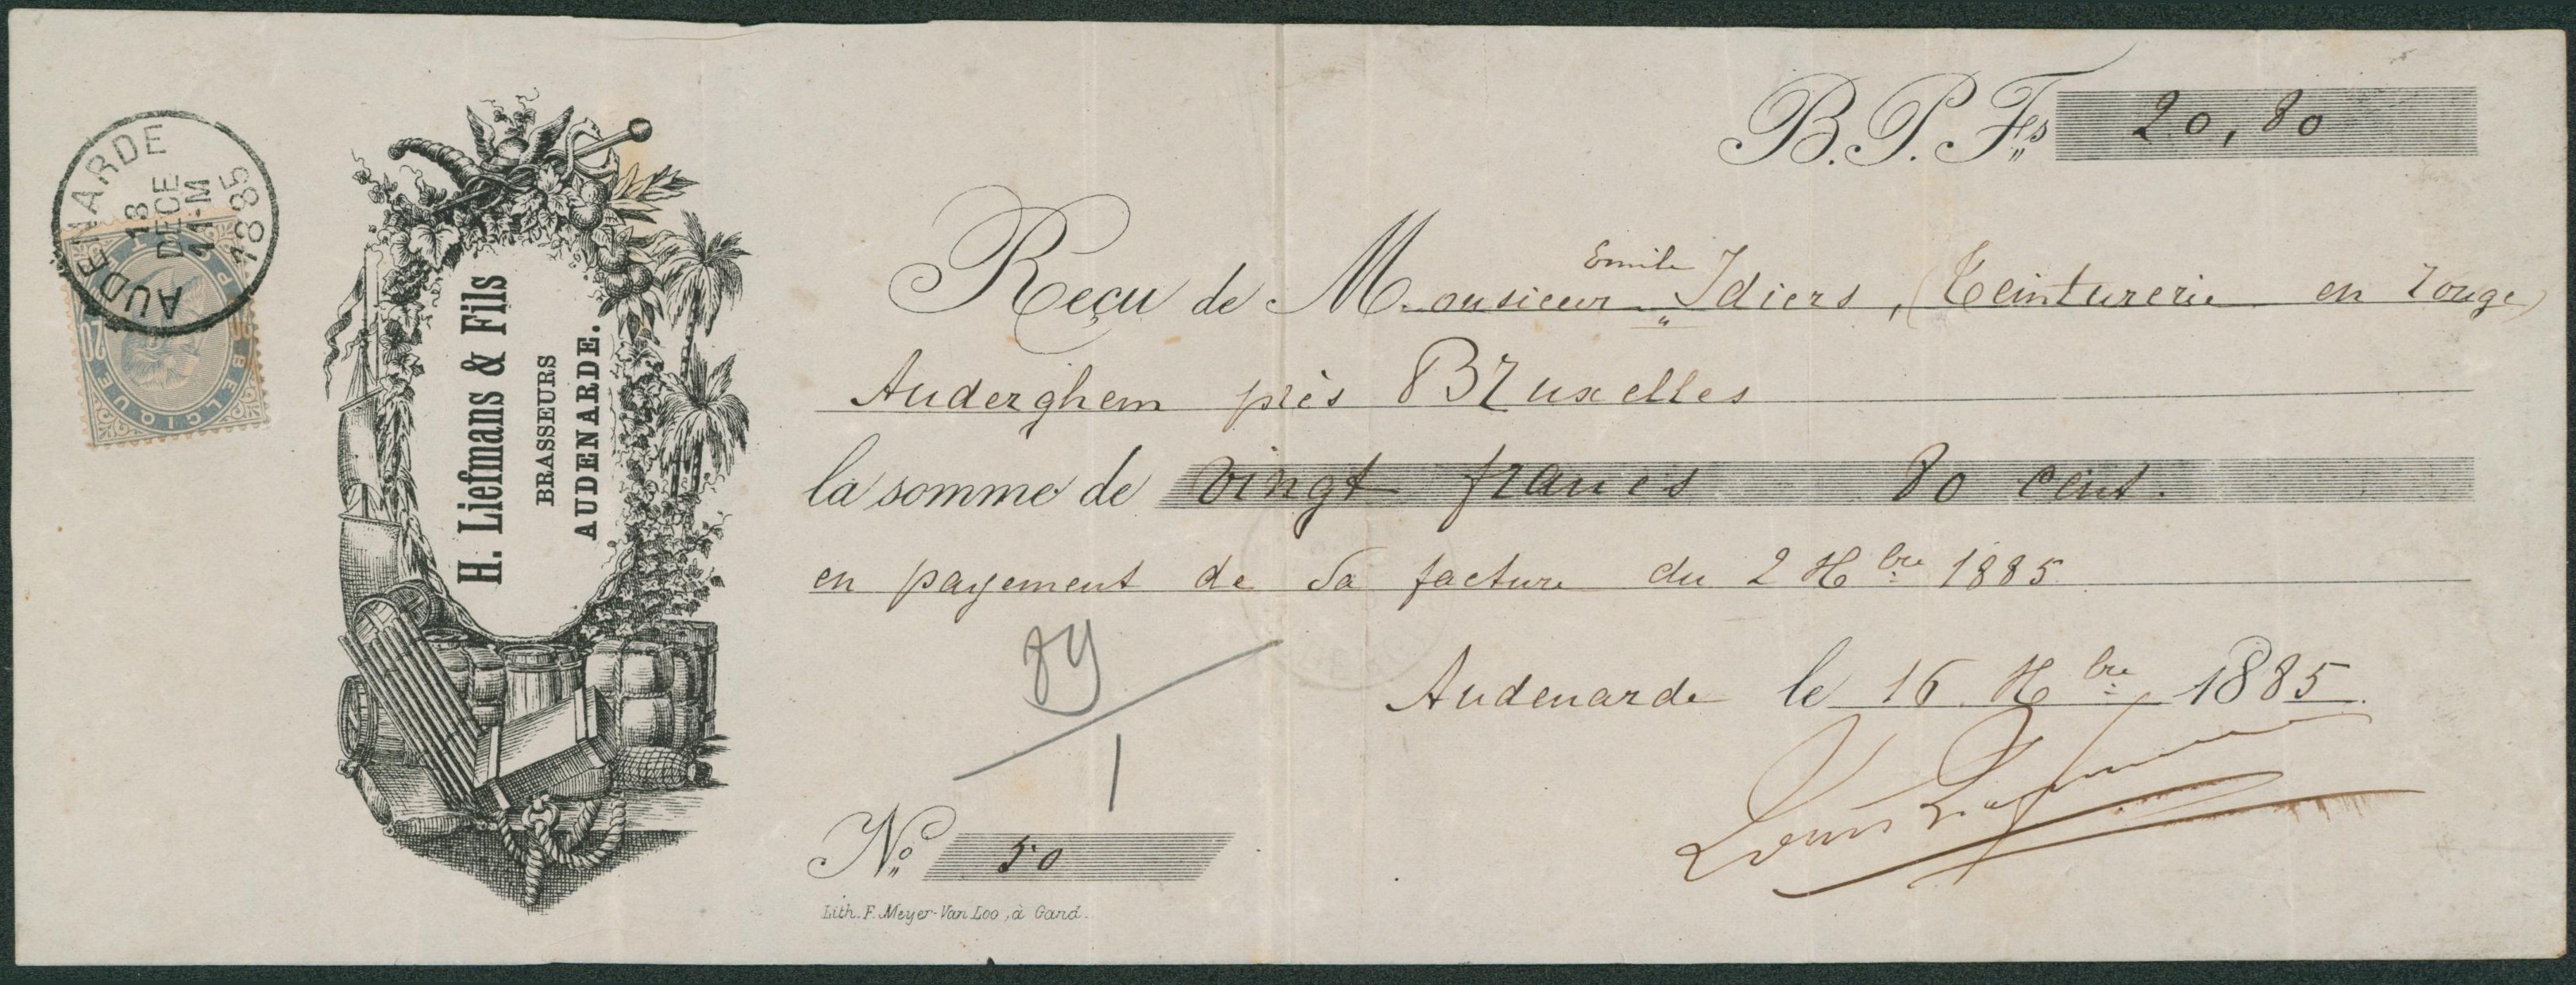 AUDENARDE
13
DECE
11-M
1885
BELGIQUE
20
H. Liefmans & Fils
BRASSEURS
AUDENARDE.
B.P. Frs 20,80
Reçu de Monsieur Emile Idiers, (Teinturerie en rouge)
Auderghem près Bruxelles
la somme de vingt francs 80 cent.
en payement de sa facture du 2 Xbre 1885
Audenarde le 16 Xbre 1885.
89
1
Louis Liefmans
No 50
Lith. F. Meyer-Van Loo, à Gand.